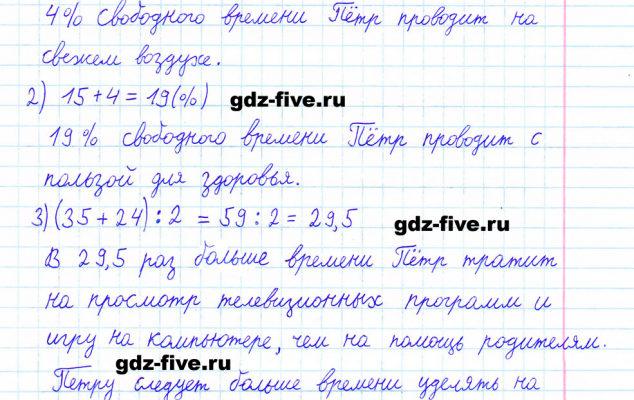 4% свободного времени Пётр проводит на
свежем воздухе.
2) 15 + 4 = 19(%) gdz-five.ru
19% свободного времени Пётр проводит с
пользой для здоровья.
3) (35 + 24) : 2 = 59 : 2 = 29,5 gdz-five.ru
В 29,5 раз больше времени Пётр тратит
на просмотр телевизионных программ и
игру на компьютере, чем на помощь родителям.
gdz-five.ru
Петру следует больше времени уделять на